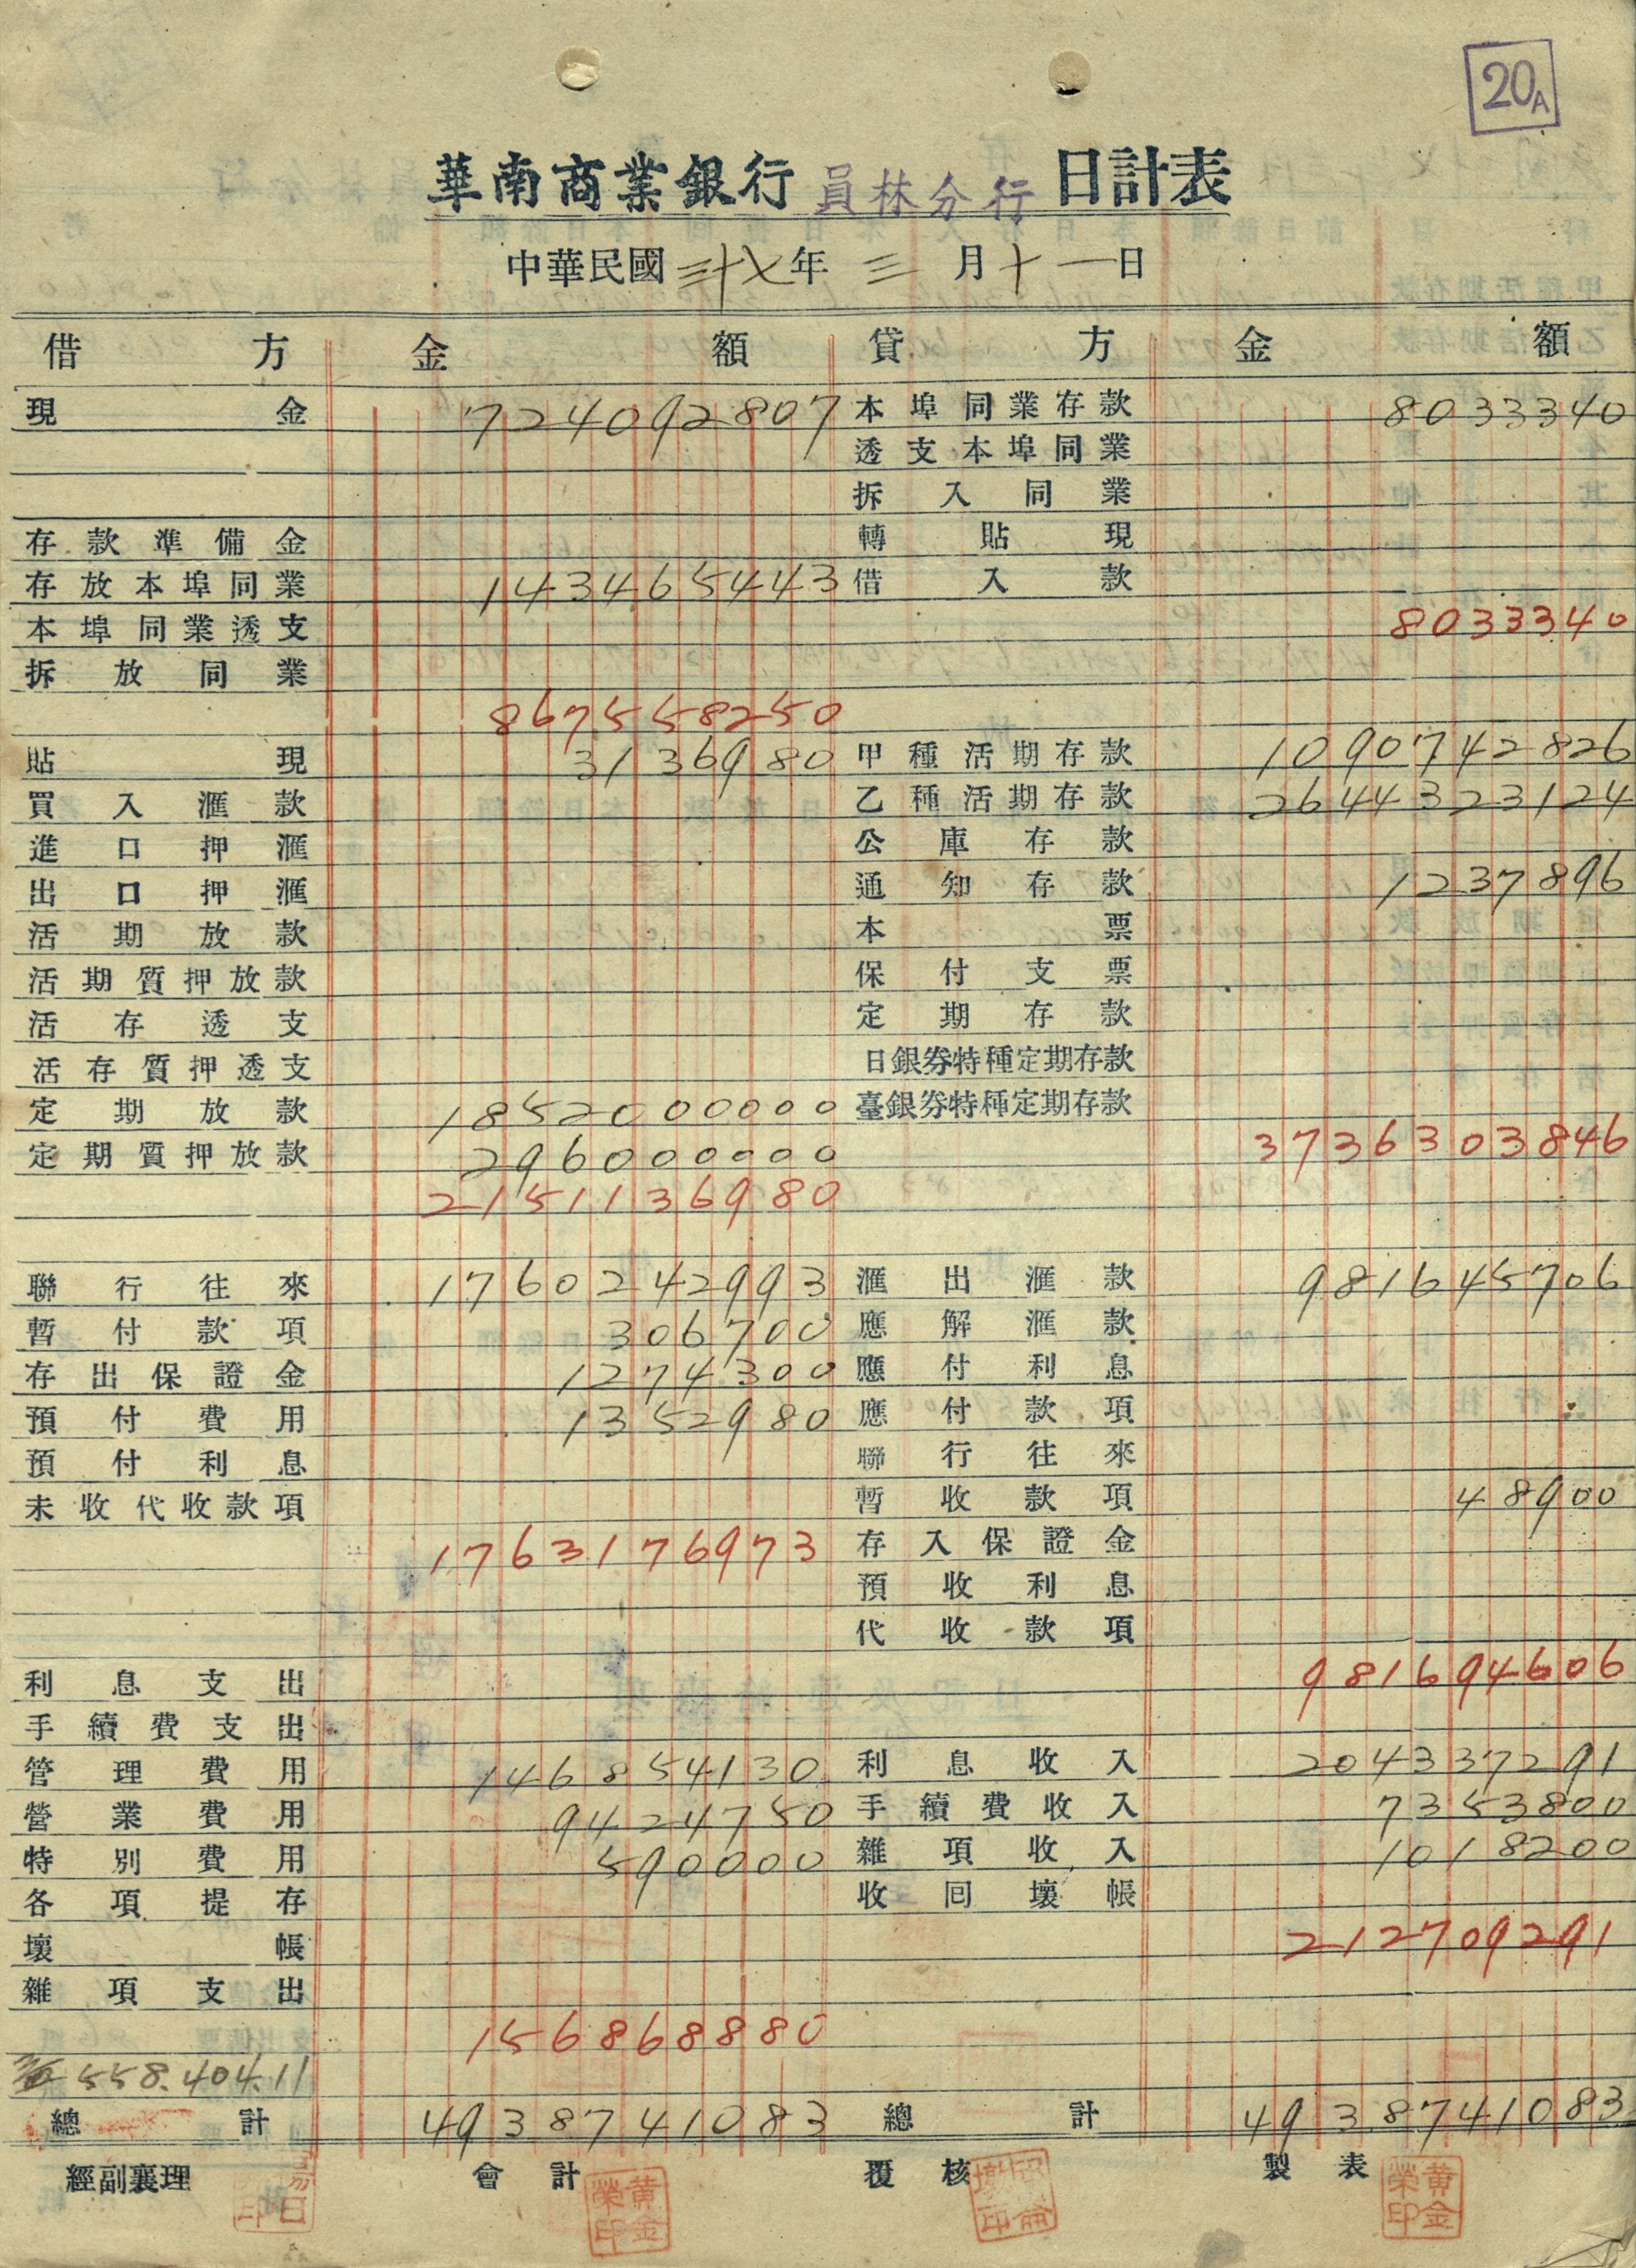 20A
華南商業銀行 員林分行 日計表
中華民國三十七年三月十一日
借方 金額 貸方 金額
現金 724092807 本埠同業存款 8033340
透支本埠同業
拆入同業
存款準備金 轉貼現
存放本埠同業 143465443 借入款
本埠同業透支 8033340
拆放同業
867558250
貼現 3136980 甲種活期存款 1090742826
買入滙款 乙種活期存款 2644323124
進口押滙 公庫存款
出口押滙 通知存款 1237896
活期放款 本票
活期質押放款 保付支票
活存透支 定期存款
活存質押透支 日銀券特種定期存款
定期放款 1852000000 臺銀券特種定期存款
定期質押放款 296000000 3736303846
2151136980
聯行往來 1760242993 滙出滙款 981645706
暫付款項 306700 應解滙款
存出保證金 1274300 應付利息
預付費用 1352980 應付款項
預付利息 聯行往來
未收代收款項 暫收款項 48900
1763176973 存入保證金
預收利息
代收款項
利息支出 981694606
手續費支出
管理費用 146854130 利息收入 204337291
營業費用 9424750 手續費收入 7353800
特別費用 590000 雜項收入 1018200
各項提存 收回壞帳
壞帳 212709291
雜項支出
156868880
558.404.11
總計 4938741083 總計 4938741083
經副襄理 會計 覆核 製表
黄金榮印 黄金榮印